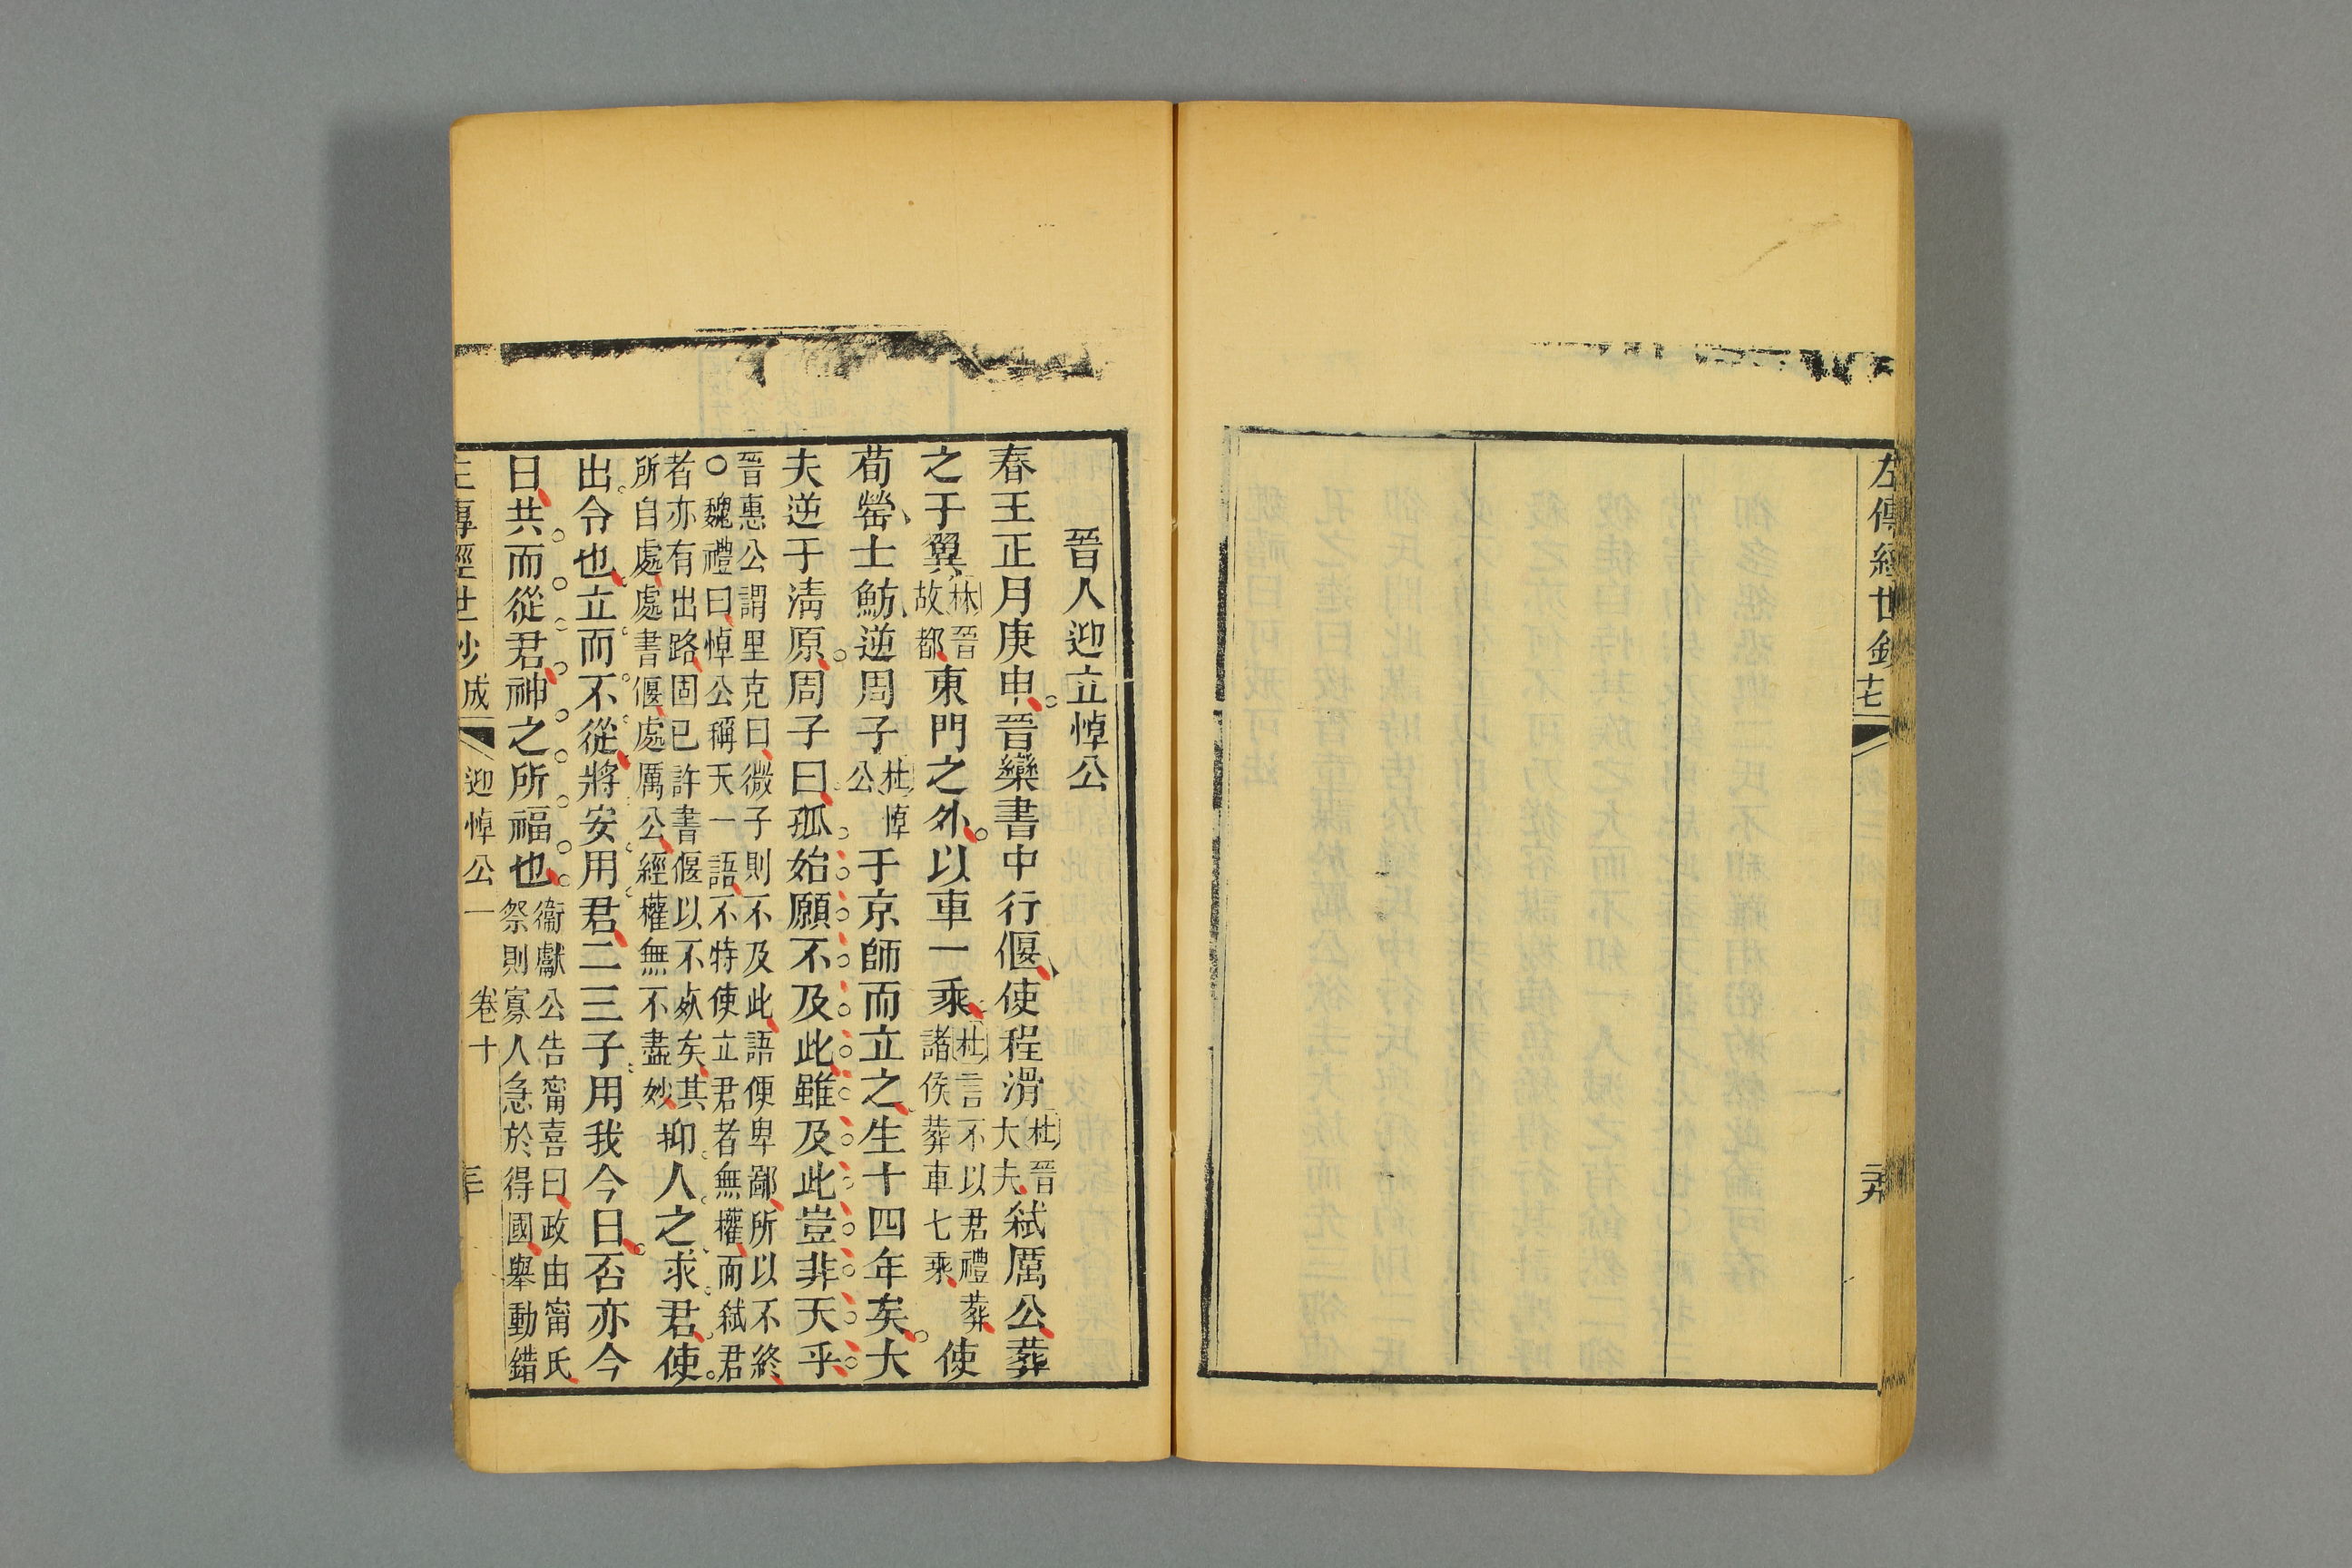 左傳經世鈔
十七
二十九
晉人迎立悼公
春王正月庚申晉欒書中行偃使程滑杜晉大夫弒厲公葬
之于翼林晉故都東門之外以車一乘杜言不以君禮葬諸侯葬車七乘使
荀罃士魴逆周子杜悼公于京師而立之生十四年矣大
夫逆于清原周子曰孤始願不及此雖及此豈非天乎
晉惠公謂里克曰微子則不及此語便卑鄙所以不終
○魏禮曰悼公稱天一語不特使立君者無權而弒君
者亦有出路固已許書偃以不㱾矣其
所自處處書偃處厲公經權無不盡妙抑人之求君使
出令也立而不從將安用君二三子用我今日否亦今
日共而從君神之所福也衞獻公告甯喜曰政由甯氏
祭則寡人急於得國舉動錯
左傳經世鈔 成
迎悼公一
卷十
三十